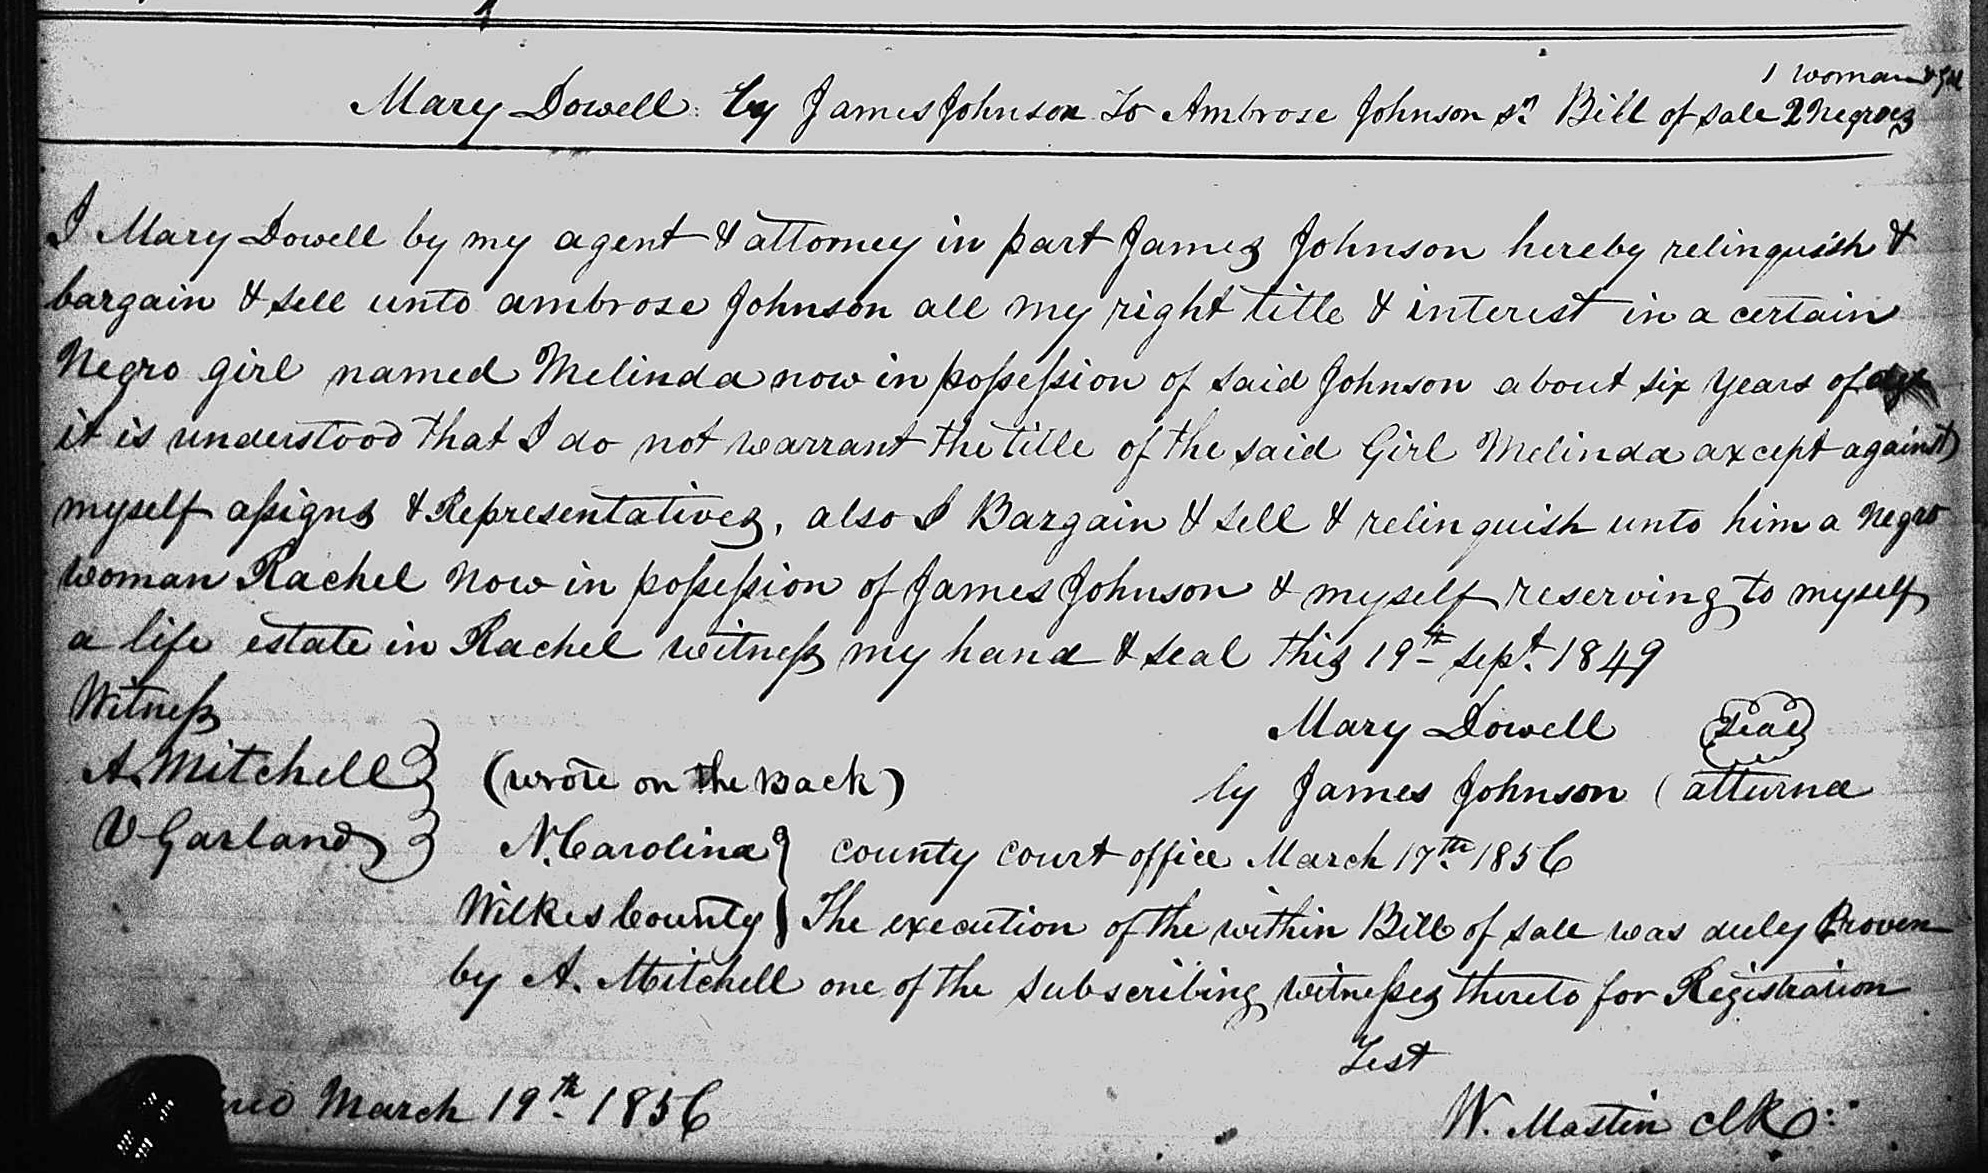 1 woman & gal
Mary Dowell by James Johnson To Ambrose Johnson Sr Bill of sale 2 Negroes
I Mary Dowell by my agent & attorney in part James Johnson hereby relinquish &
bargain & sell unto ambrose Johnson all my right title & interest in a certain
Negro girl named Melinda now in possession of said Johnson about six years of age
it is understood that I do not warrant the title of the said Girl Melinda axcept against
myself assigns & Representatives, also I Bargain & sell & relinquish unto him a Negro
woman Rachel now in possession of James Johnson & myself reserving to myself
a life estate in Rachel witness my hand & seal this 19th sept. 1849
Witness
Mary Dowell (Seal)
A. Mitchell } (wrote on the back) by James Johnson (atturna
V Garland }
N. Carolina } county court office March 17th 1856
Wilkes County } The execution of the within Bill of sale was duly Proven
by A. Mitchell one of the subscribing witnesses thereto for Registration
Test
March 19th 1856 W. Mastin clk